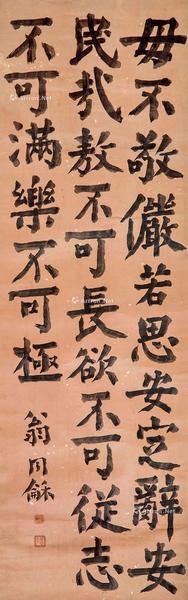 毋不敬儼若思安定辭安
民哉敖不可長欲不可從志
不可滿樂不可極
翁同龢